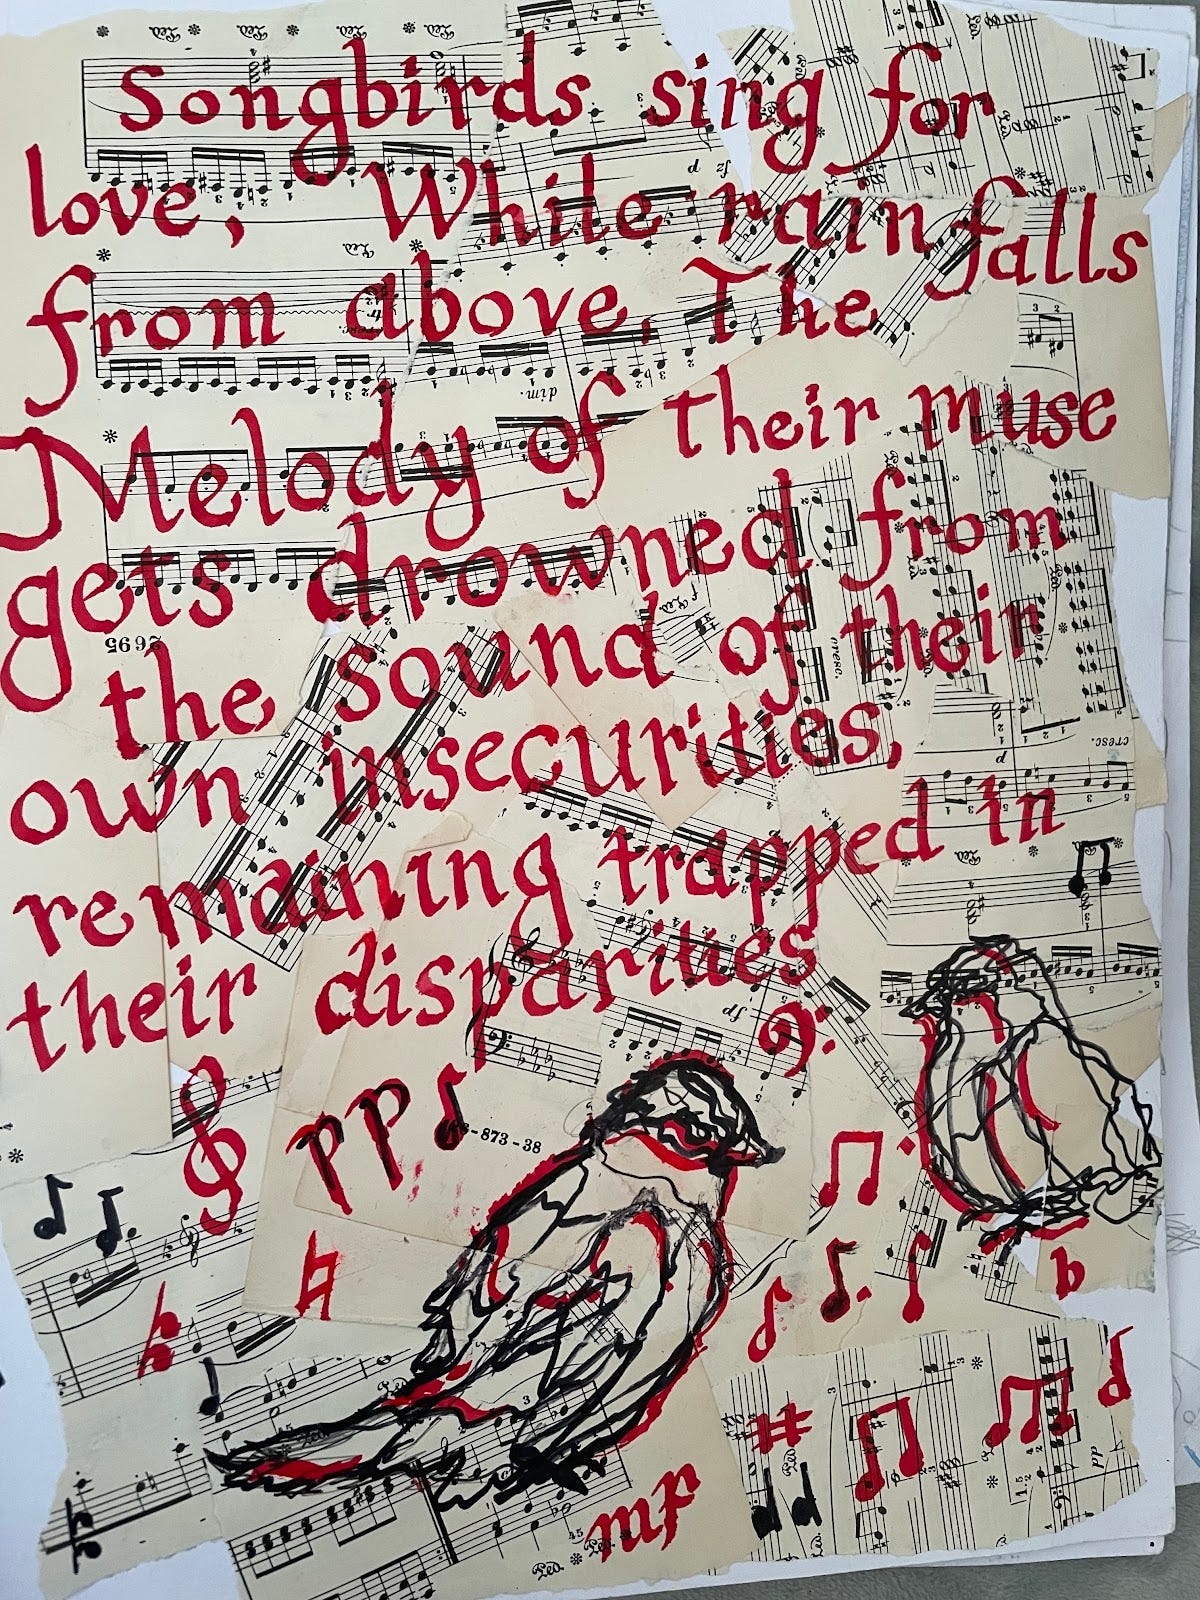 Songbirds sing for
love, While rain falls
from above. The
Melody of their muse
gets drowned from
the sound of their
own insecurities,
remaining trapped in
their disparities
pp
mf
2695
-873-38
dim.
cresc.
cresc.
fz
p
fp
pp